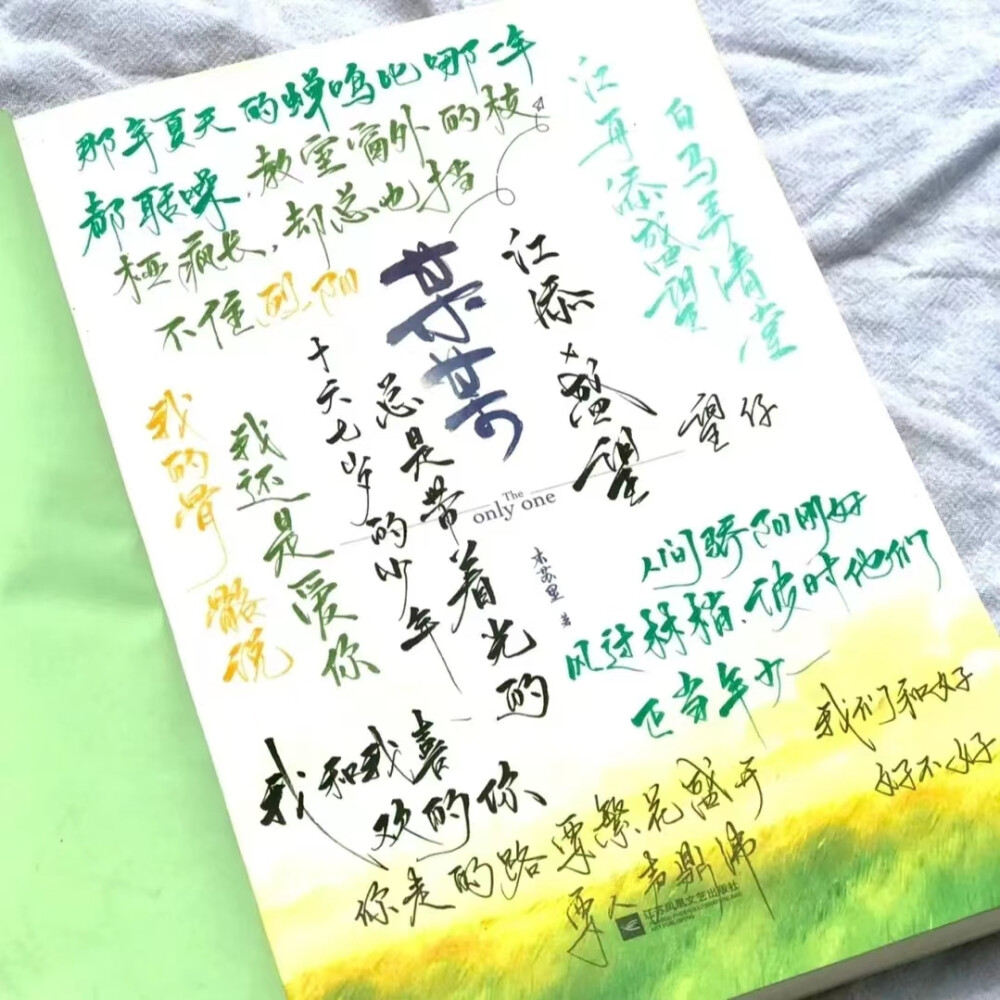 那年夏天的蝉鸣比哪一年
都聒噪，教室窗外的枝
桠疯长，却总也挡
不住烈阳
江再添盛望
白马弄清堂
某某
江添×盛望
望仔
十六七岁的少年
总是带着光的
我的骨骼说
我还是爱你
The
only one
木苏里 著
人间骄阳刚好
风过林梢，彼时他们
正当年少
我和我喜
欢的你
我们和好
好不好
你走的路要繁花盛开
要人声鼎沸
江苏凤凰文艺出版社